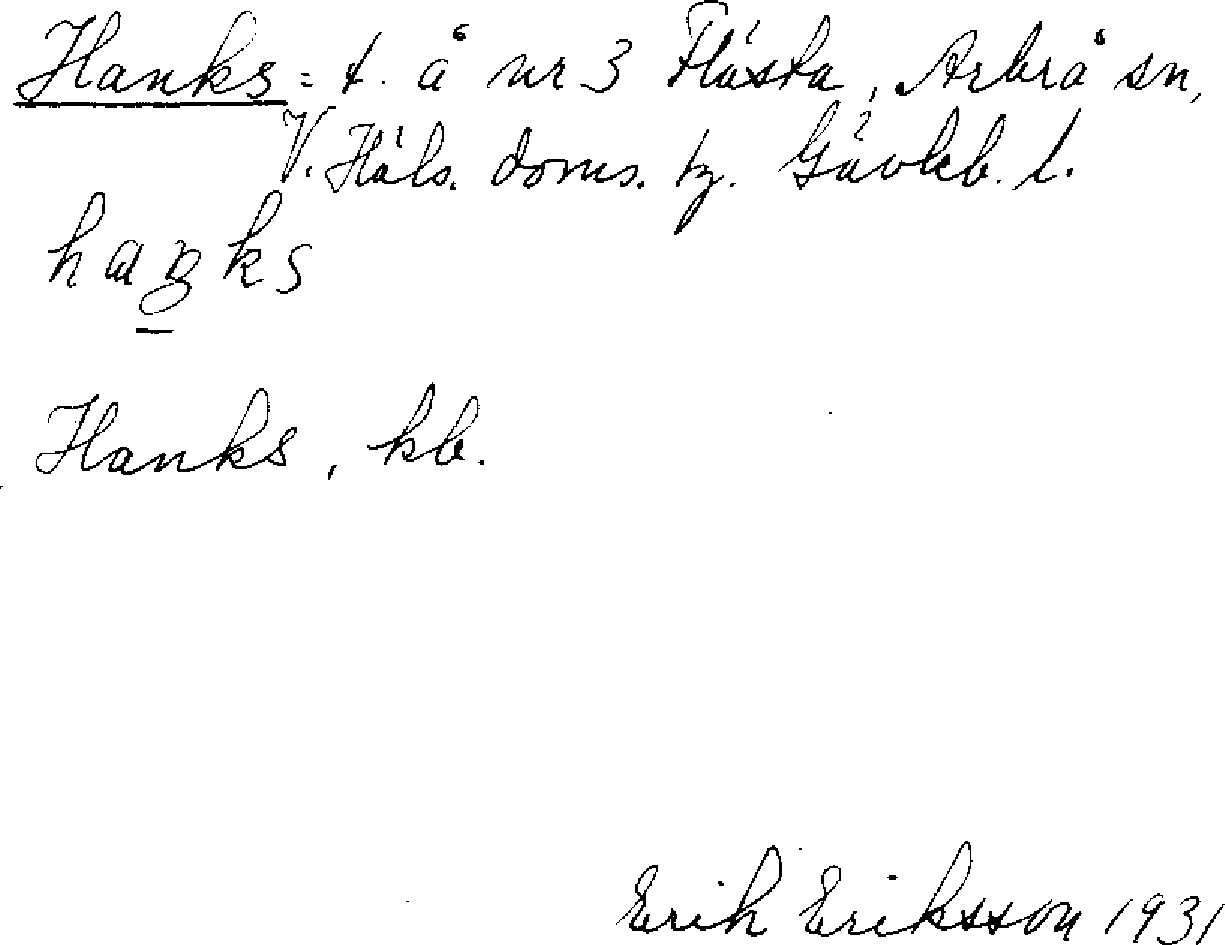 Hanks = t. å nr 3 Flästa, Arbrå sn,
V. Häls. doms. tg. Gävleb. l.
haŋks
Hanks, kb.
Erik Eriksson 1931